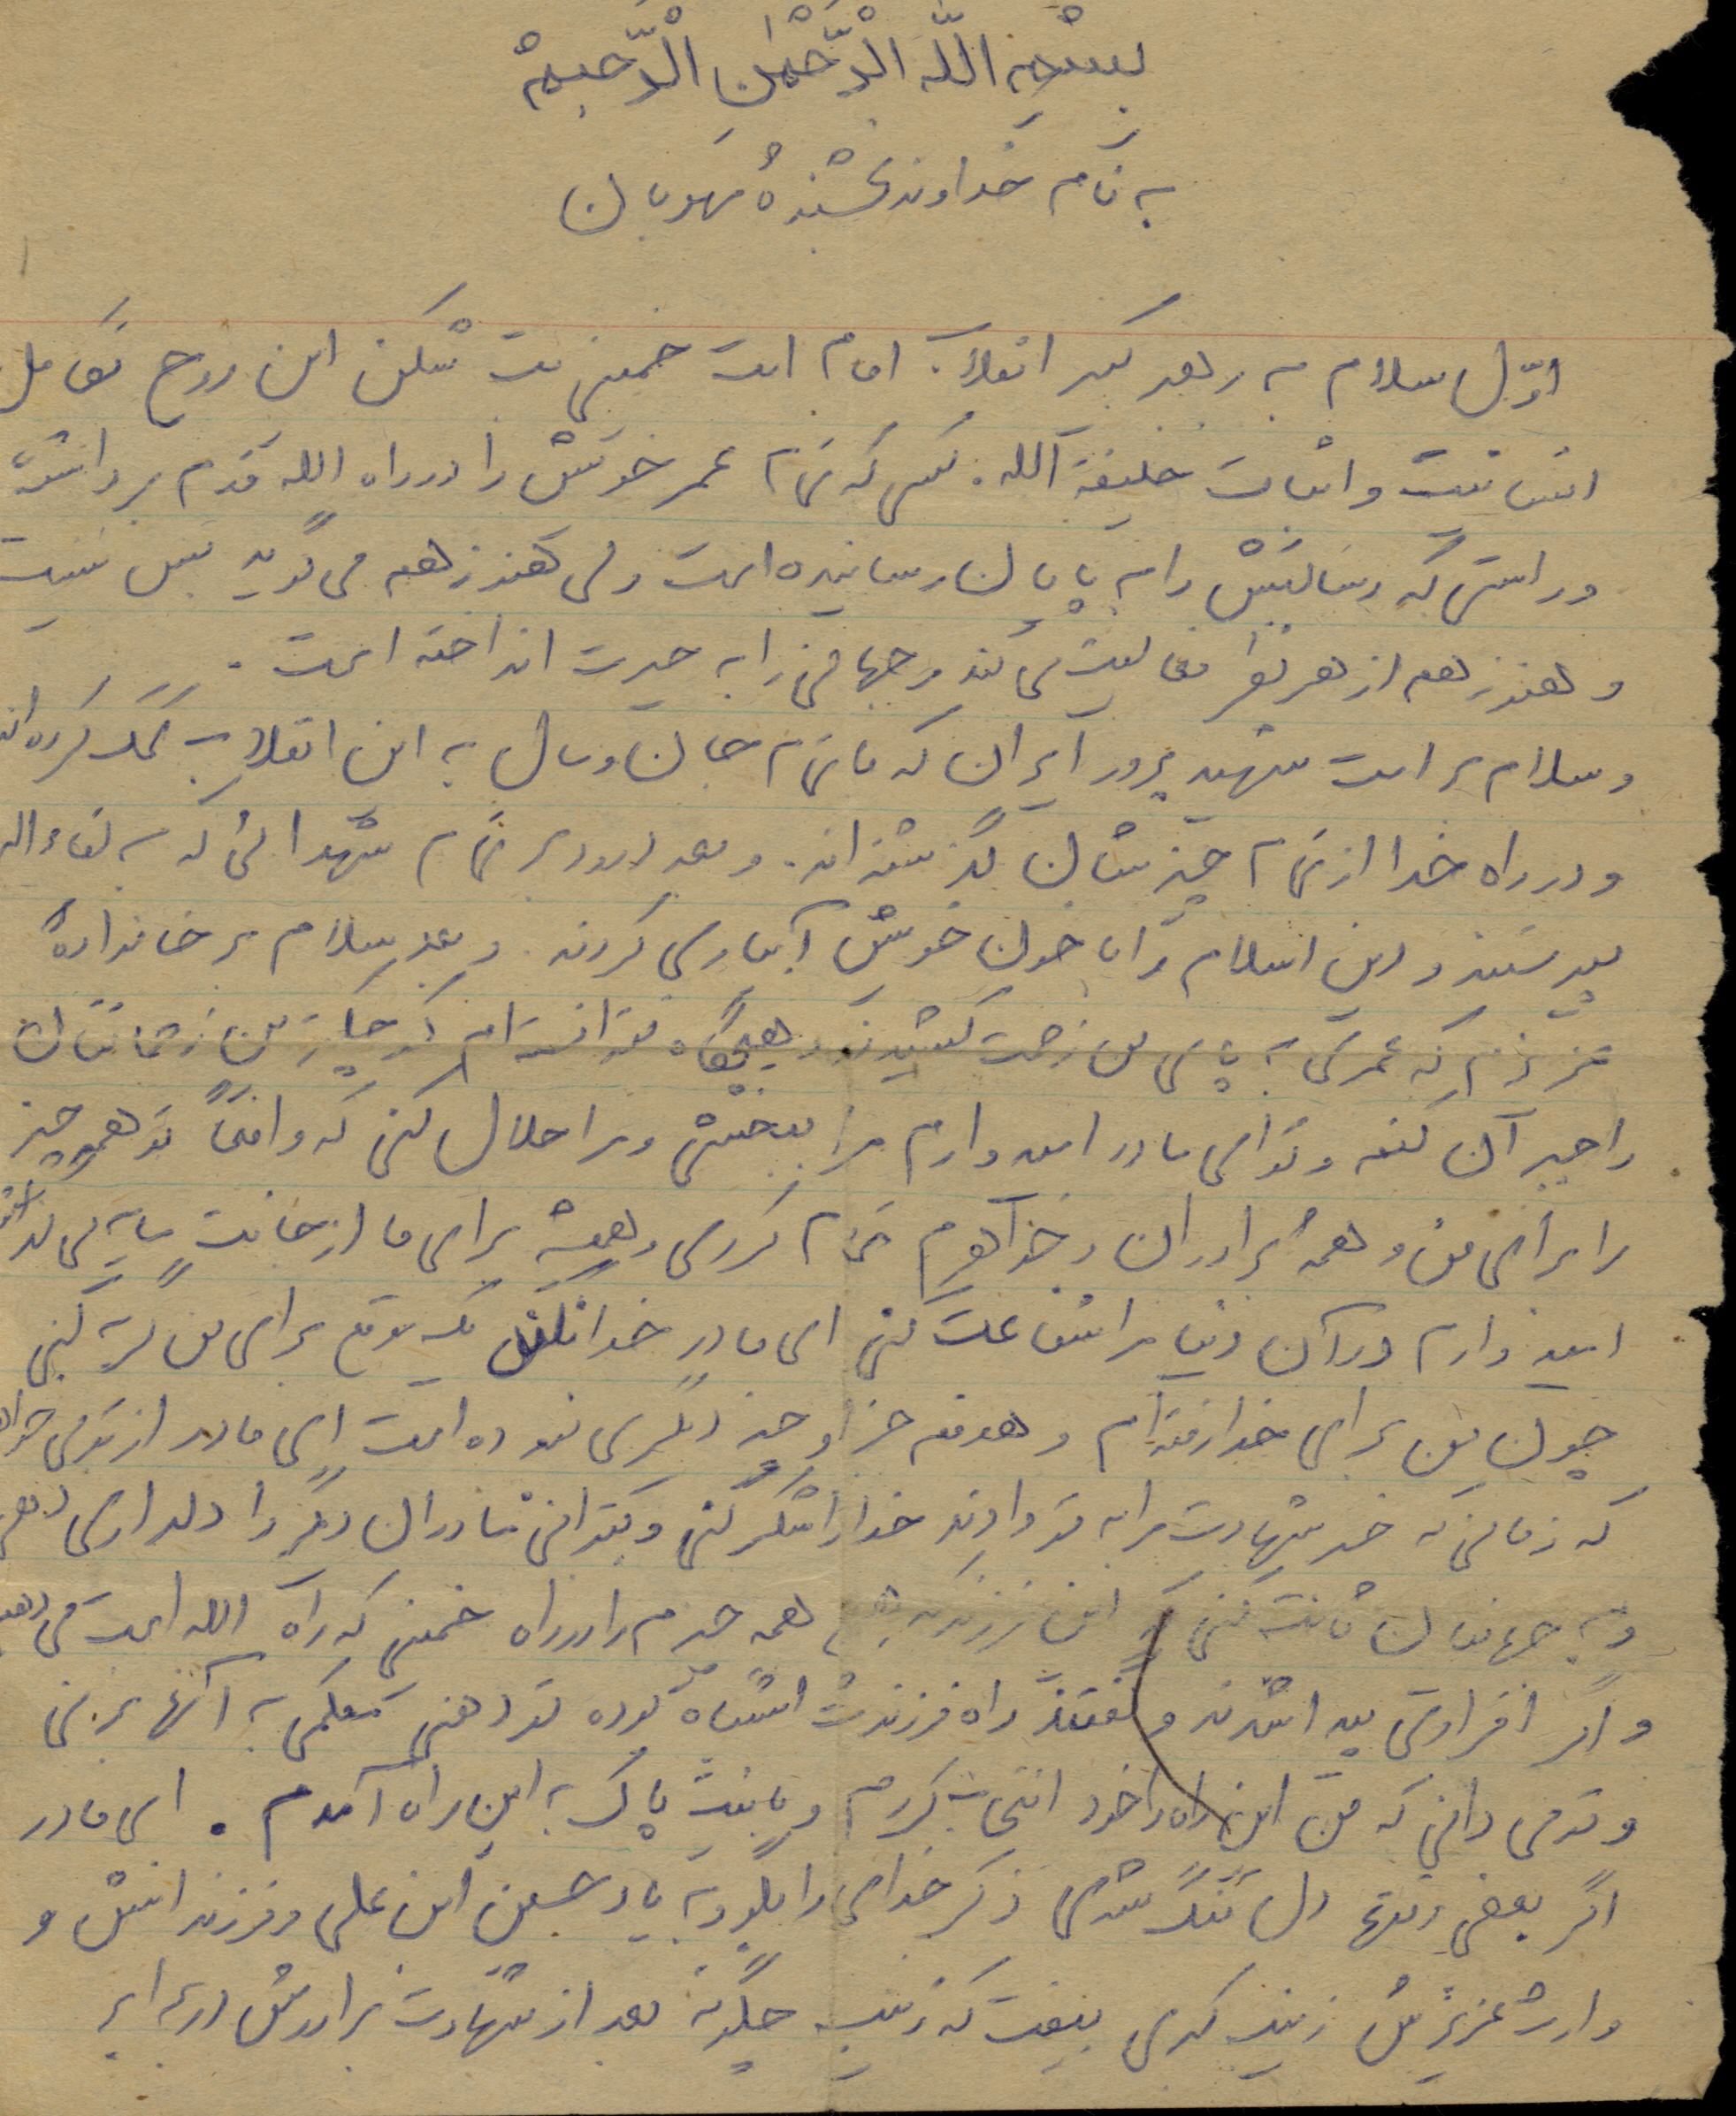 بِسْمِ اللّه الرَّحْمٰنِ الْرَّحیمْ
به نام خداوند بخشندهٔ مهربان
اوّل سلام به رهبر کبیر انقلاب امام امت خمینی بت شکن این روح تکامل
انسانیت و اثبات خلیفة الله. کسی که تمام عمر خویش را در راه الله قدم برداشته
و راستی که رسالتش را به پایان رسانیده است ولی هنوز هم می گوید بس نیست
و هنوز هم از هر نظر فعالیت می کند و جهانی را به حیرت انداخته است.
و سلام بر امت شهید پرور ایران که با تمام جان و مال به این انقلاب کمک کرده اند
و در راه خدا از تمام چیزشان گذشته اند. و بعد درود بر تمام شهدائی که به لقاء الله
پیوستند و دین اسلام را با خون خویش آبیاری کردند. و بعد سلام بر خانوادهٔ
عزیزم که عمری به پای من زحمت کشیدند و هیچگاه نتوانسته ام کوچکترین زحماتتان
را جبران کنم و تو ای مادر امیدوارم مرا ببخشی و مرا حلال کنی که واقعاً تو همه چیز
را برای من و همهٔ برادران و خواهرم تمام کردی و همیشه برای ما از جانت مایه می گذاشتی
امید وارم در آن دنیا مرا شفاعت کنی ای مادر خدا نکند یک موقع برای من گریه کنی
چون من برای خدا رفته ام و هدفم جز او چیز دیگری نبوده است ای مادر از تو می خواهم
که زمانی که خبر شهادت مرا به تو دادند خدا را شکر کنی و بتوانی مادران دیگر را دلداری دهی
و به جهانیان ثابت کنی که این فرزندم همه چیزم را در راه خمینی که راه الله است می دهم
و اگر افرادی پیدا شدند و گفتند راه فرزندت اشتباه بوده تو دهنی محکمی به آنها بزنی
و تو می دانی که من این راه را خود انتخاب کردم و با نیت پاک به این راه آمدم. ای مادر
اگر بعضی وقتها دل تنگ شدی ذکر خدای را بگو و به یاد حسین ابن علی و فرزندانش و
وارث عزیزش زینب کبری بیفت که زینب چگونه بعد از شهادت برادرش در برابر